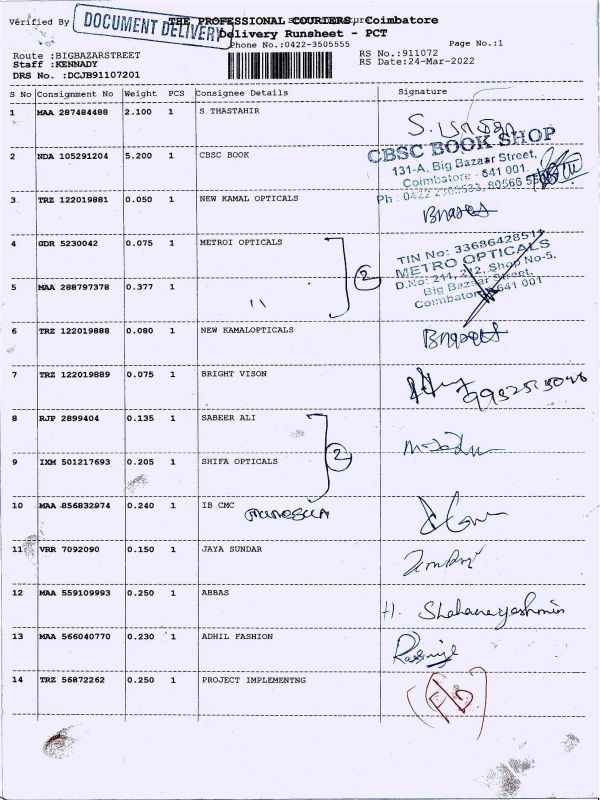 Verified By
DOCUMENT DELIVERY
THE PROFESSIONAL COURIERS, Coimbatore
Delivery Runsheet - PCT
Phone No.:0422-3505555
Page No.:1
Route :BIGBAZARSTREET
Staff :KENNADY
DRS No. :DCJB91107201
RS No.:911072
RS Date:24-Mar-2022
S No Consignment No Weight PCS Consignee Details Signature
1 MAA 287484488 2.100 1 S THASTAHIR
2 NDA 105291204 5.200 1 CBSC BOOK
CBSC BOOK SHOP
131-A, Big Bazaar Street,
Coimbatore - 641 001.
3 TRZ 122019881 0.050 1 NEW KAMAL OPTICALS
4 GDR 5230042 0.075 1 METROI OPTICALS
2
TIN No: 33686428511
METRO OPTICALS
D.No: 211, 212, Shop No-5,
Big Bazaar Street,
Coimbatore 641 001
5 MAA 288797378 0.377 1 "
6 TRZ 122019888 0.080 1 NEW KAMALOPTICALS
7 TRZ 122019889 0.075 1 BRIGHT VISON
8 RJP 2899404 0.135 1 SABEER ALI
2
9 IXM 501217693 0.205 1 SHIFA OPTICALS
10 MAA 856832974 0.240 1 IB CMC
11 VRR 7092090 0.150 1 JAYA SUNDAR
12 MAA 559109993 0.250 1 ABBAS
13 MAA 566040770 0.230 1 ADHIL FASHION
14 TRZ 56872262 0.250 1 PROJECT IMPLEMENTNG